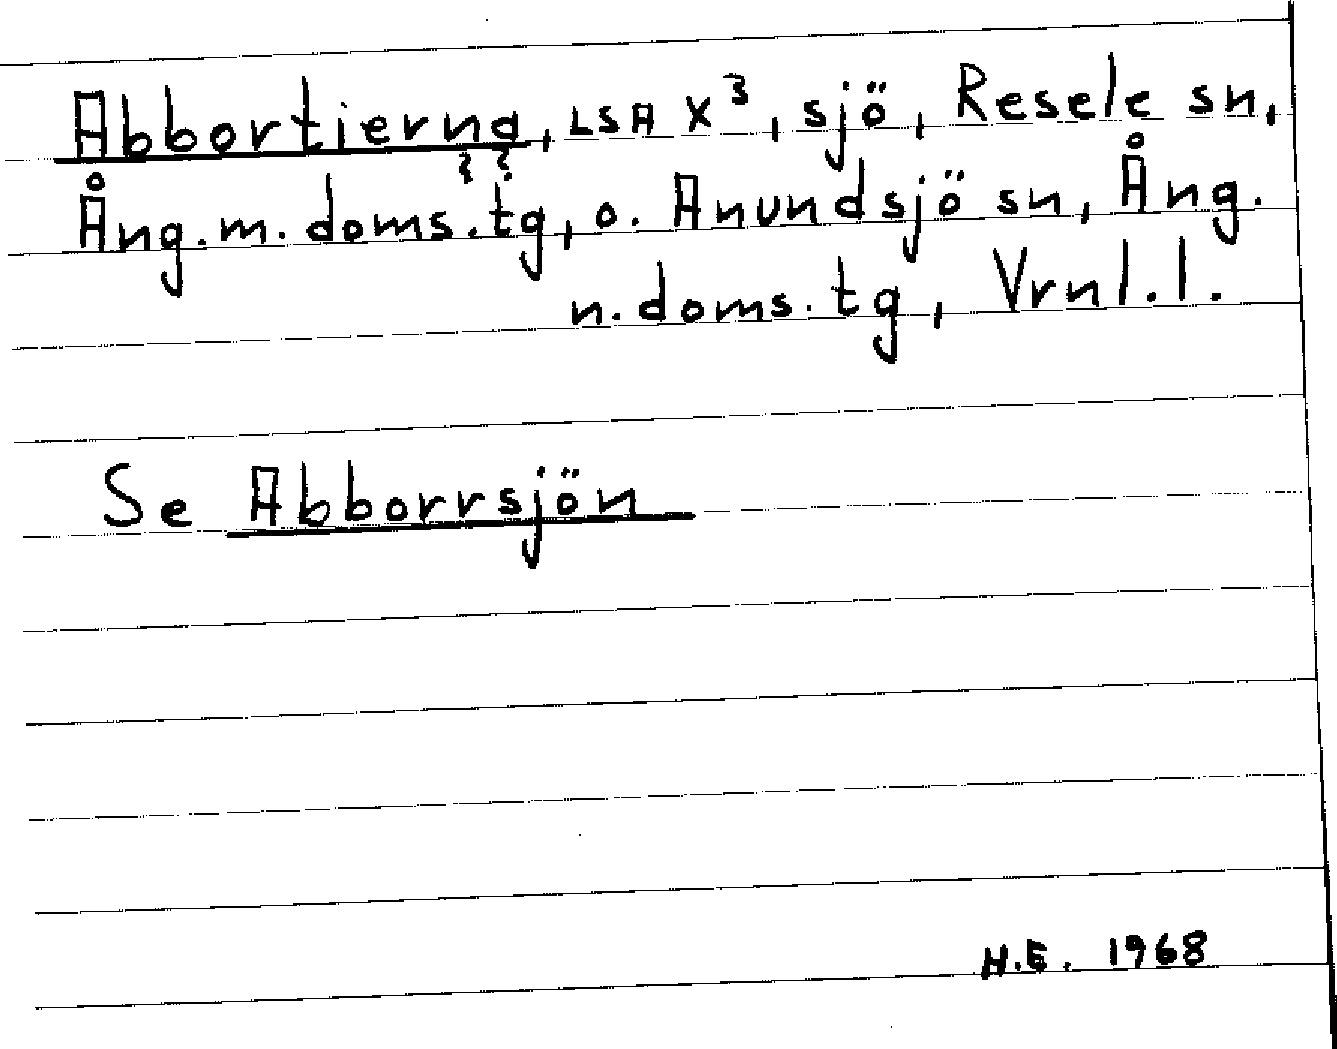 Abbortierna, LSA X³, sjö, Resele sn,
Ång.m.doms.tg, o. Anundsjö sn, Ång.
n.doms.tg, Vrnl.l.
Se Abborrsjön
H.E. 1968